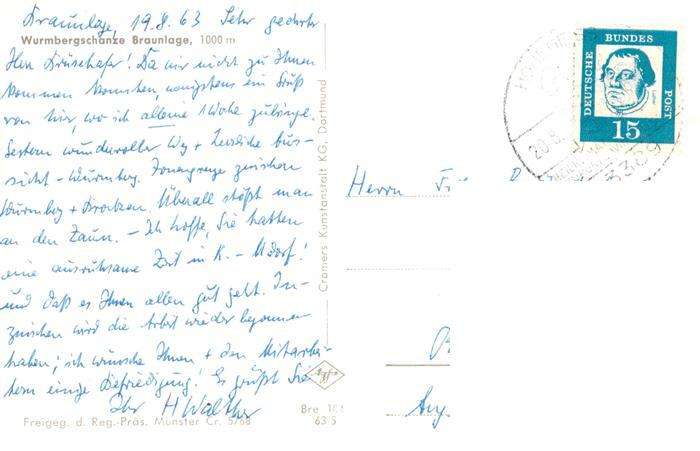 Braunlage, 19.8.63 Sehr geehrter
Wurmbergschanze Braunlage, 1000 m
Herr Da wir nicht zu Ihnen
kommen konnten wenigstens ein Gruß
von hier, wo ich alleine 1 Woche zubringe.
Gestern wundervoller Weg + herrliche Aus-
sicht - Wurmberg. Zonengrenze zwischen
Wurmberg + Brocken. Überall stößt man
an den Zaun. - Ich hoffe, Sie hatten
eine ausruhsame Zeit in K. -
und daß es Ihnen allen gut geht. In-
zwischen wird die Arbeit wieder begonnen
haben; ich wünsche Ihnen + den Mitarbei-
tern einige Befriedigung! Es grüßt Sie
Ihr H Walther
Freigeg. d. Reg.-Präs. Münster Cr. 5768
Cramers Kunstanstalt KG, Dortmund
Bre
63/5
Herrn
DEUTSCHE BUNDES POST
15
20.8.
3389